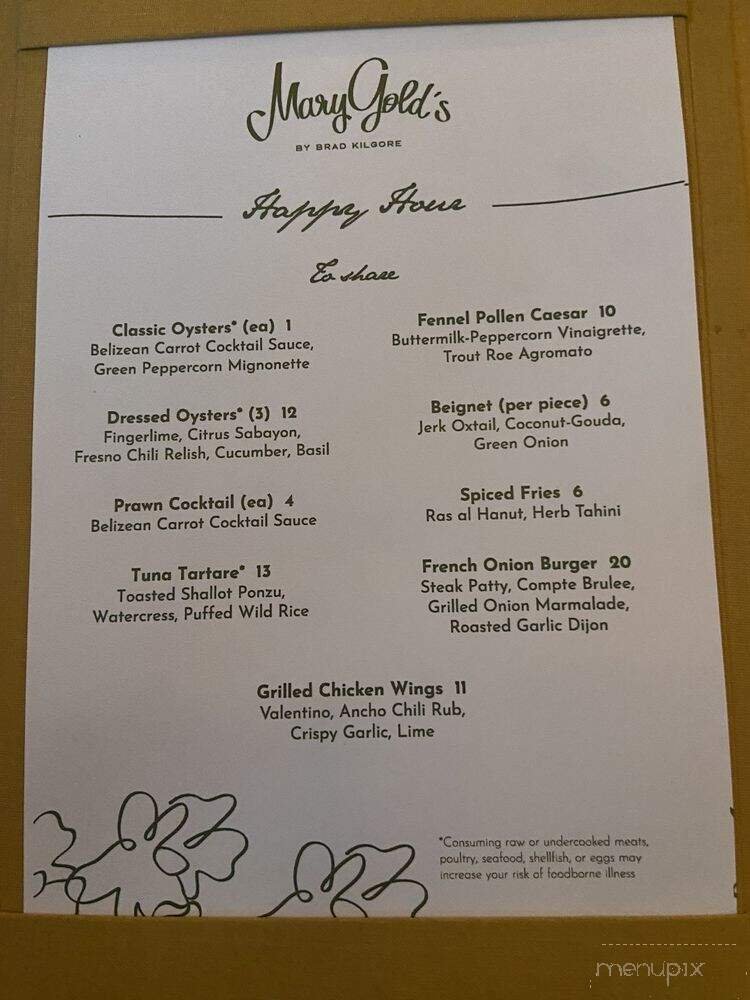 Mary Gold's
BY BRAD KILGORE
Happy Hour
To share
Classic Oysters* (ea) 1
Belizean Carrot Cocktail Sauce,
Green Peppercorn Mignonette
Dressed Oysters* (3) 12
Fingerlime, Citrus Sabayon,
Fresno Chili Relish, Cucumber, Basil
Prawn Cocktail (ea) 4
Belizean Carrot Cocktail Sauce
Tuna Tartare* 13
Toasted Shallot Ponzu,
Watercress, Puffed Wild Rice
Fennel Pollen Caesar 10
Buttermilk-Peppercorn Vinaigrette,
Trout Roe Agromato
Beignet (per piece) 6
Jerk Oxtail, Coconut-Gouda,
Green Onion
Spiced Fries 6
Ras al Hanut, Herb Tahini
French Onion Burger 20
Steak Patty, Compte Brulee,
Grilled Onion Marmalade,
Roasted Garlic Dijon
Grilled Chicken Wings 11
Valentino, Ancho Chili Rub,
Crispy Garlic, Lime
*Consuming raw or undercooked meats,
poultry, seafood, shellfish, or eggs may
increase your risk of foodborne illness
menupix